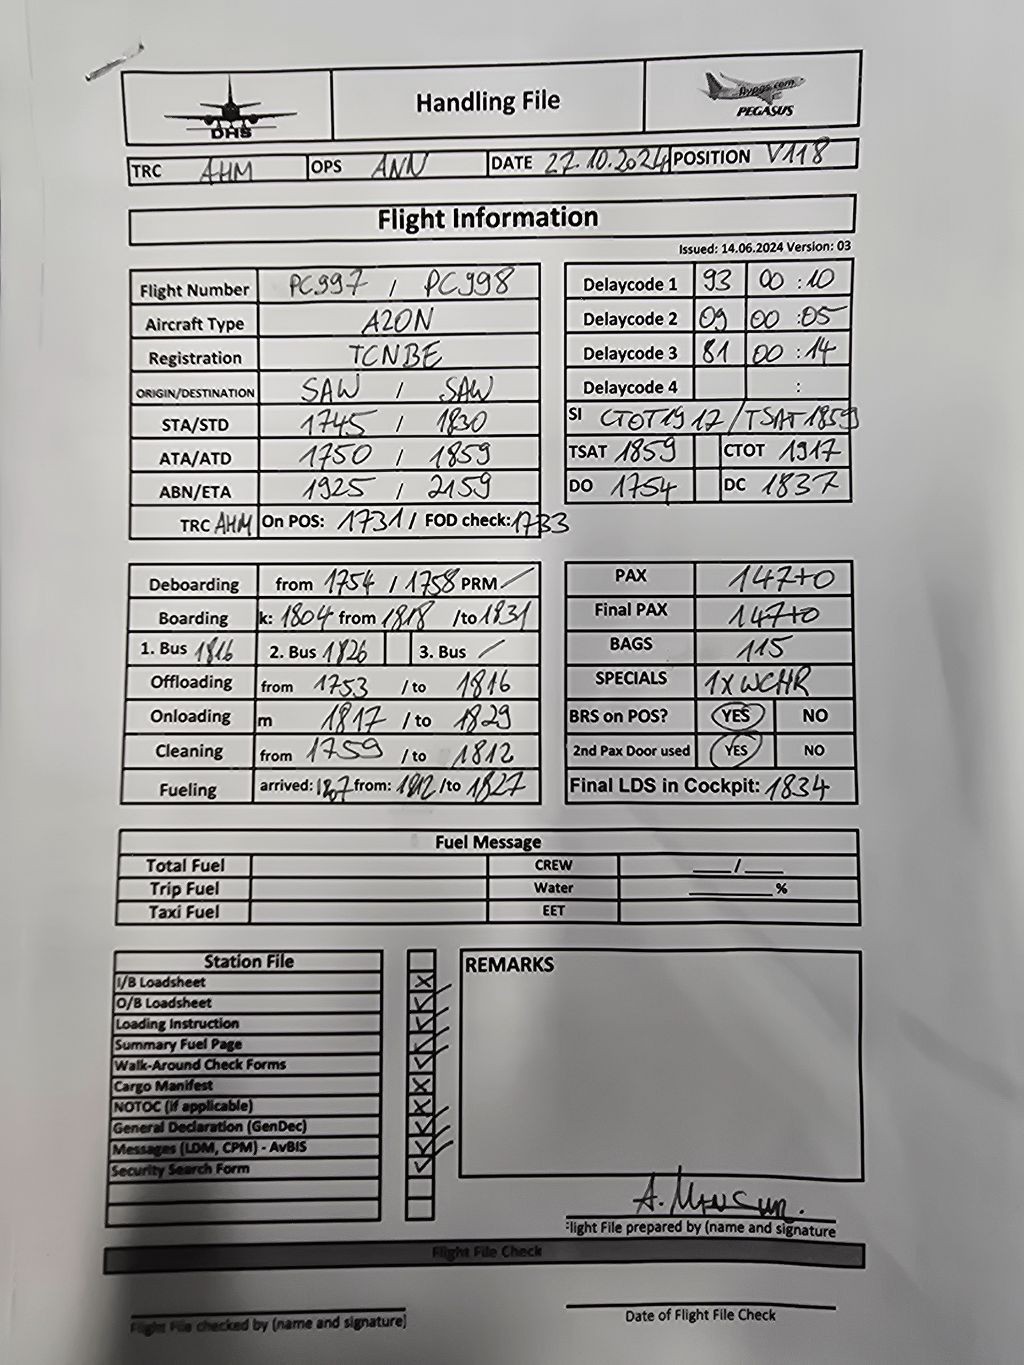 DHS
Handling File
flypgs.com
PEGASUS
TRC AHM OPS ANN DATE 27.10.2024 POSITION V118
Flight Information
Issued: 14.06.2024 Version: 03
Flight Number PC997 / PC998
Aircraft Type A20N
Registration TCNBE
ORIGIN/DESTINATION SAW / SAW
STA/STD 1745 / 1830
ATA/ATD 1750 / 1859
ABN/ETA 1925 / 2159
TRC AHM On POS: 1731 / FOD check: 1733
Delaycode 1 93 00 : 10
Delaycode 2 09 00 : 05
Delaycode 3 81 00 : 14
Delaycode 4 :
SI CTOT 1917 / TSAT 1859
TSAT 1859 CTOT 1917
DO 1754 DC 1837
Deboarding from 1754 / 1758 PRM /
Boarding k: 1804 from 1818 /to 1831
1. Bus 1816 2. Bus 1826 3. Bus /
Offloading from 1753 / to 1816
Onloading m 1817 / to 1829
Cleaning from 1759 / to 1812
Fueling arrived: 1807 from: 1812 /to 1827
PAX 147+0
Final PAX 147+0
BAGS 115
SPECIALS 1xWCHR
BRS on POS? YES NO
2nd Pax Door used YES NO
Final LDS in Cockpit: 1834
Fuel Message
Total Fuel CREW ____/____
Trip Fuel Water ________%
Taxi Fuel EET
Station File
I/B Loadsheet
O/B Loadsheet
Loading Instruction
Summary Fuel Page
Walk-Around Check Forms
Cargo Manifest
NOTOC (if applicable)
General Declaration (GenDec)
Messages (LDM, CPM) - AvBIS
Security Search Form
REMARKS
A. Mansur.
Flight File prepared by (name and signature
Flight File Check
Flight File checked by (name and signature)
Date of Flight File Check